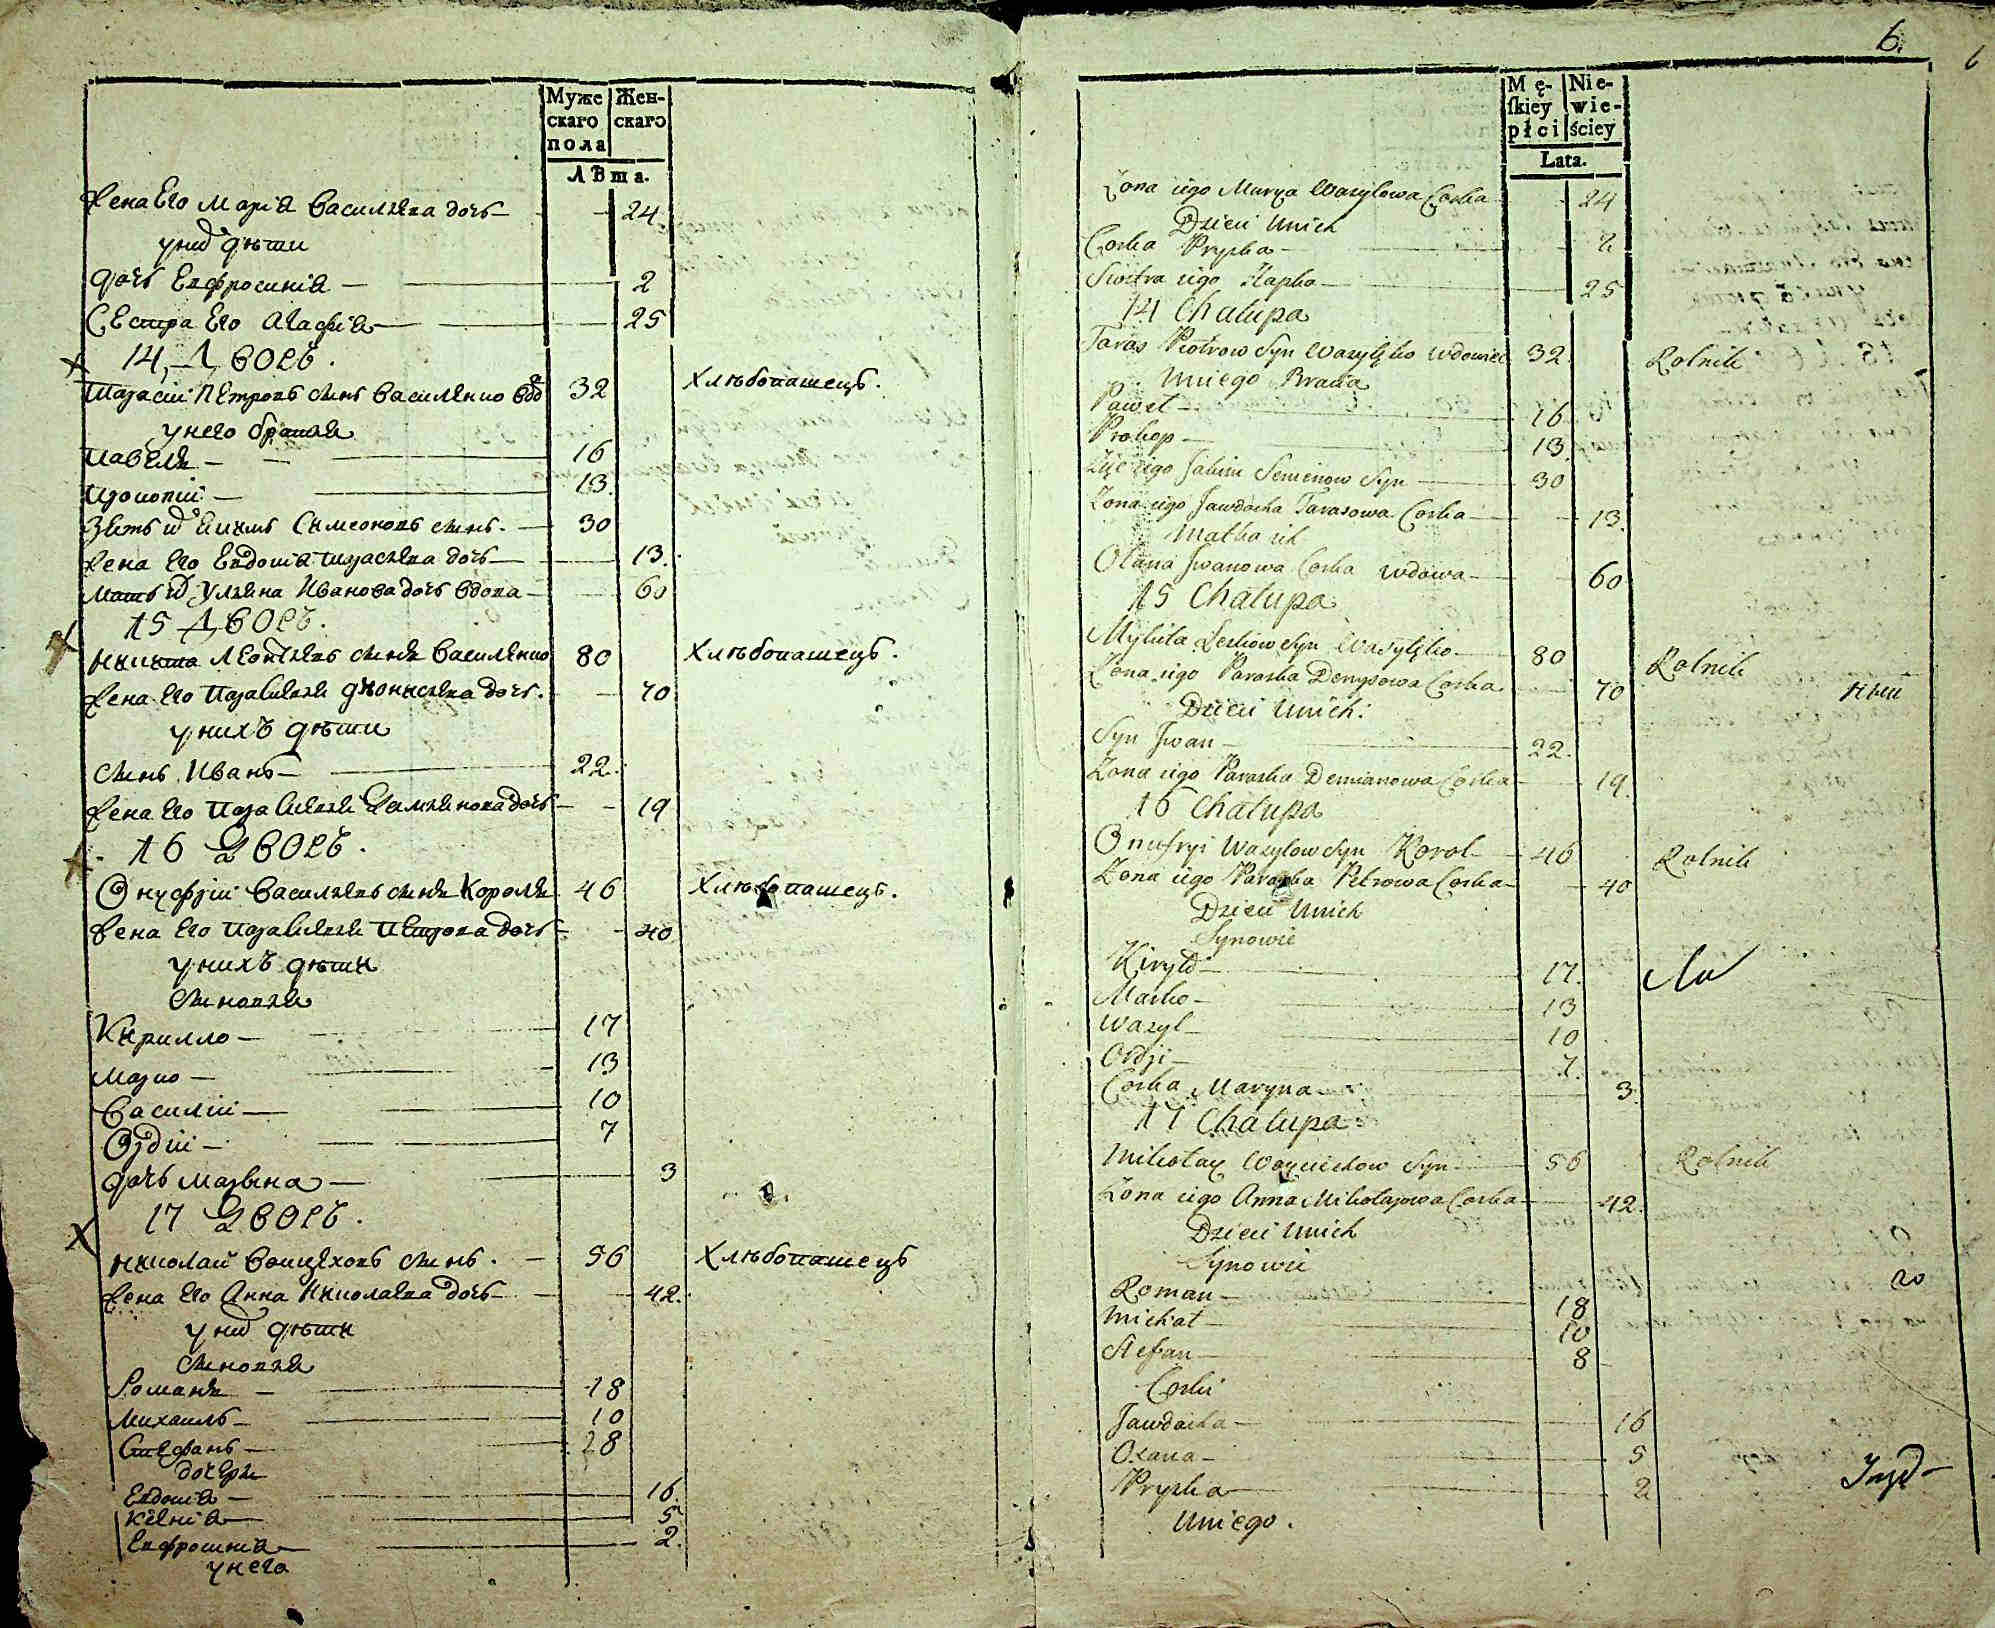 Муже
скаго
пола
Жен-
скаго
ЛѢта.
Жена Его Марія Васильева дочь — 24
у них дѣти
дочь Евфросинія — 2
Сестра Его Агафія — 25
14, Дворъ.
Тарасій Петровъ сынъ Василенко вдо 32 Хлѣбопашецъ.
у него братья
Павелъ — 16
Прокопій — 13.
Зять их Екимъ Симеоновъ сынъ. — 30
Жена Его Евдокія Тарасьева дочь — 13.
Мать их Ульяна Иванова дочь вдова — 60
15 Дворъ.
Никита Леонтьевъ сынъ Василенко 80 Хлѣбопашецъ.
Жена Его Параскевія Діонисьева дочь. 70
у нихъ дѣти
Сынъ Иванъ — 22.
Жена Его Параскевія Демьянова дочь — 19
16 Дворъ.
Онуфрій Васильевъ сынъ Король 46 Хлѣбопашецъ.
Жена Его Параскевія Петрова дочь — 40
у нихъ дѣти
Сыновья
Кирилло — 17
Марко — 13
Василій — 10
Овдій — 7
дочь Марвина — 3
17 Дворъ.
Николай Войцеховъ сынъ. — 56 Хлѣбопашецъ
Жена Его Анна Николаева дочь — 42.
у них дѣти
Сыновья
Романъ — 18
Михаилъ — 10
Стефанъ — 28
дочери
Евдокія — 16.
Ксенія — 5
Евфросинія — 2.
у него
6.
6
Mę-
skiey
płci
Nie-
wie-
ściey
Lata.
Żona iego Marya Wasylowa Corka — 24
Dzieci Unich
Corka Pryska — 2
Siostra iego Hapka — 25
14 Chałupa
Taras Piotrow Syn Wasylęko wdowiec 32. Rolnik
Uniego Bracia
Paweł — 16
Prokop — 13.
Zięć iego Jakim Semenow Syn — 30
Żona iego Jawdocka Tarasowa Corka — 13.
Matka ich
Olana Jwanowa Corka wdowa — 60
15 Chałupa
Mykita Leskow Syn Wasylęko — 80 Rolnik
Żona iego Paraska Denysowa Corka 70
Dzieci Unich:
Syn Jwan — 22.
Żona iego Paraska Demianowa Corka — 19.
16 Chałupa
Onufryi Wasylow Syn Korol — 46 Rolnik
Żona iego Paraska Petrowa Corka — 40
Dzieci Unich
Synowie
Kiryło — 17.
Marko — 13
Wasyl — 10
Owdji — 7.
Corka Maryna — 3.
17 Chałupa
Mikołay Woyciechow Syn — 56 Rolnik
Żona iego Anna Mikołajowa Corka — 42.
Dzieci Unich
Synowie
Roman — 18
Michał — 10
Stefan — 8
Corki
Jawdocka — 16
Oxana — 5
Pryska — 2
Uniego.